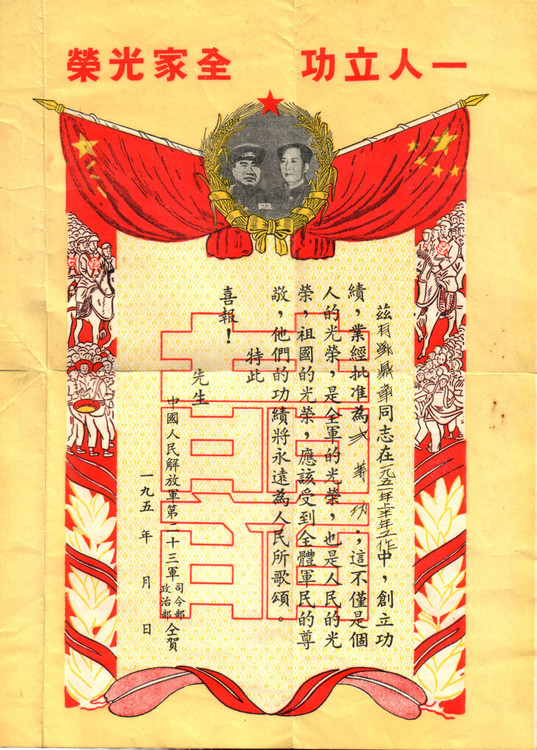 一人立功 全家光榮
茲有同志在一九五一年上半年工作中，創立功
績，業經批准為弍等功，這不僅是個
人的光榮，是全軍的光榮，也是人民的光
榮，祖國的光榮，應該受到全體軍民的尊
敬，他們的功績將永遠為人民所歌頌。
特此
喜報！
先生
中國人民解放軍第二十三軍司令部政治部仝賀
一九五 年 月 日